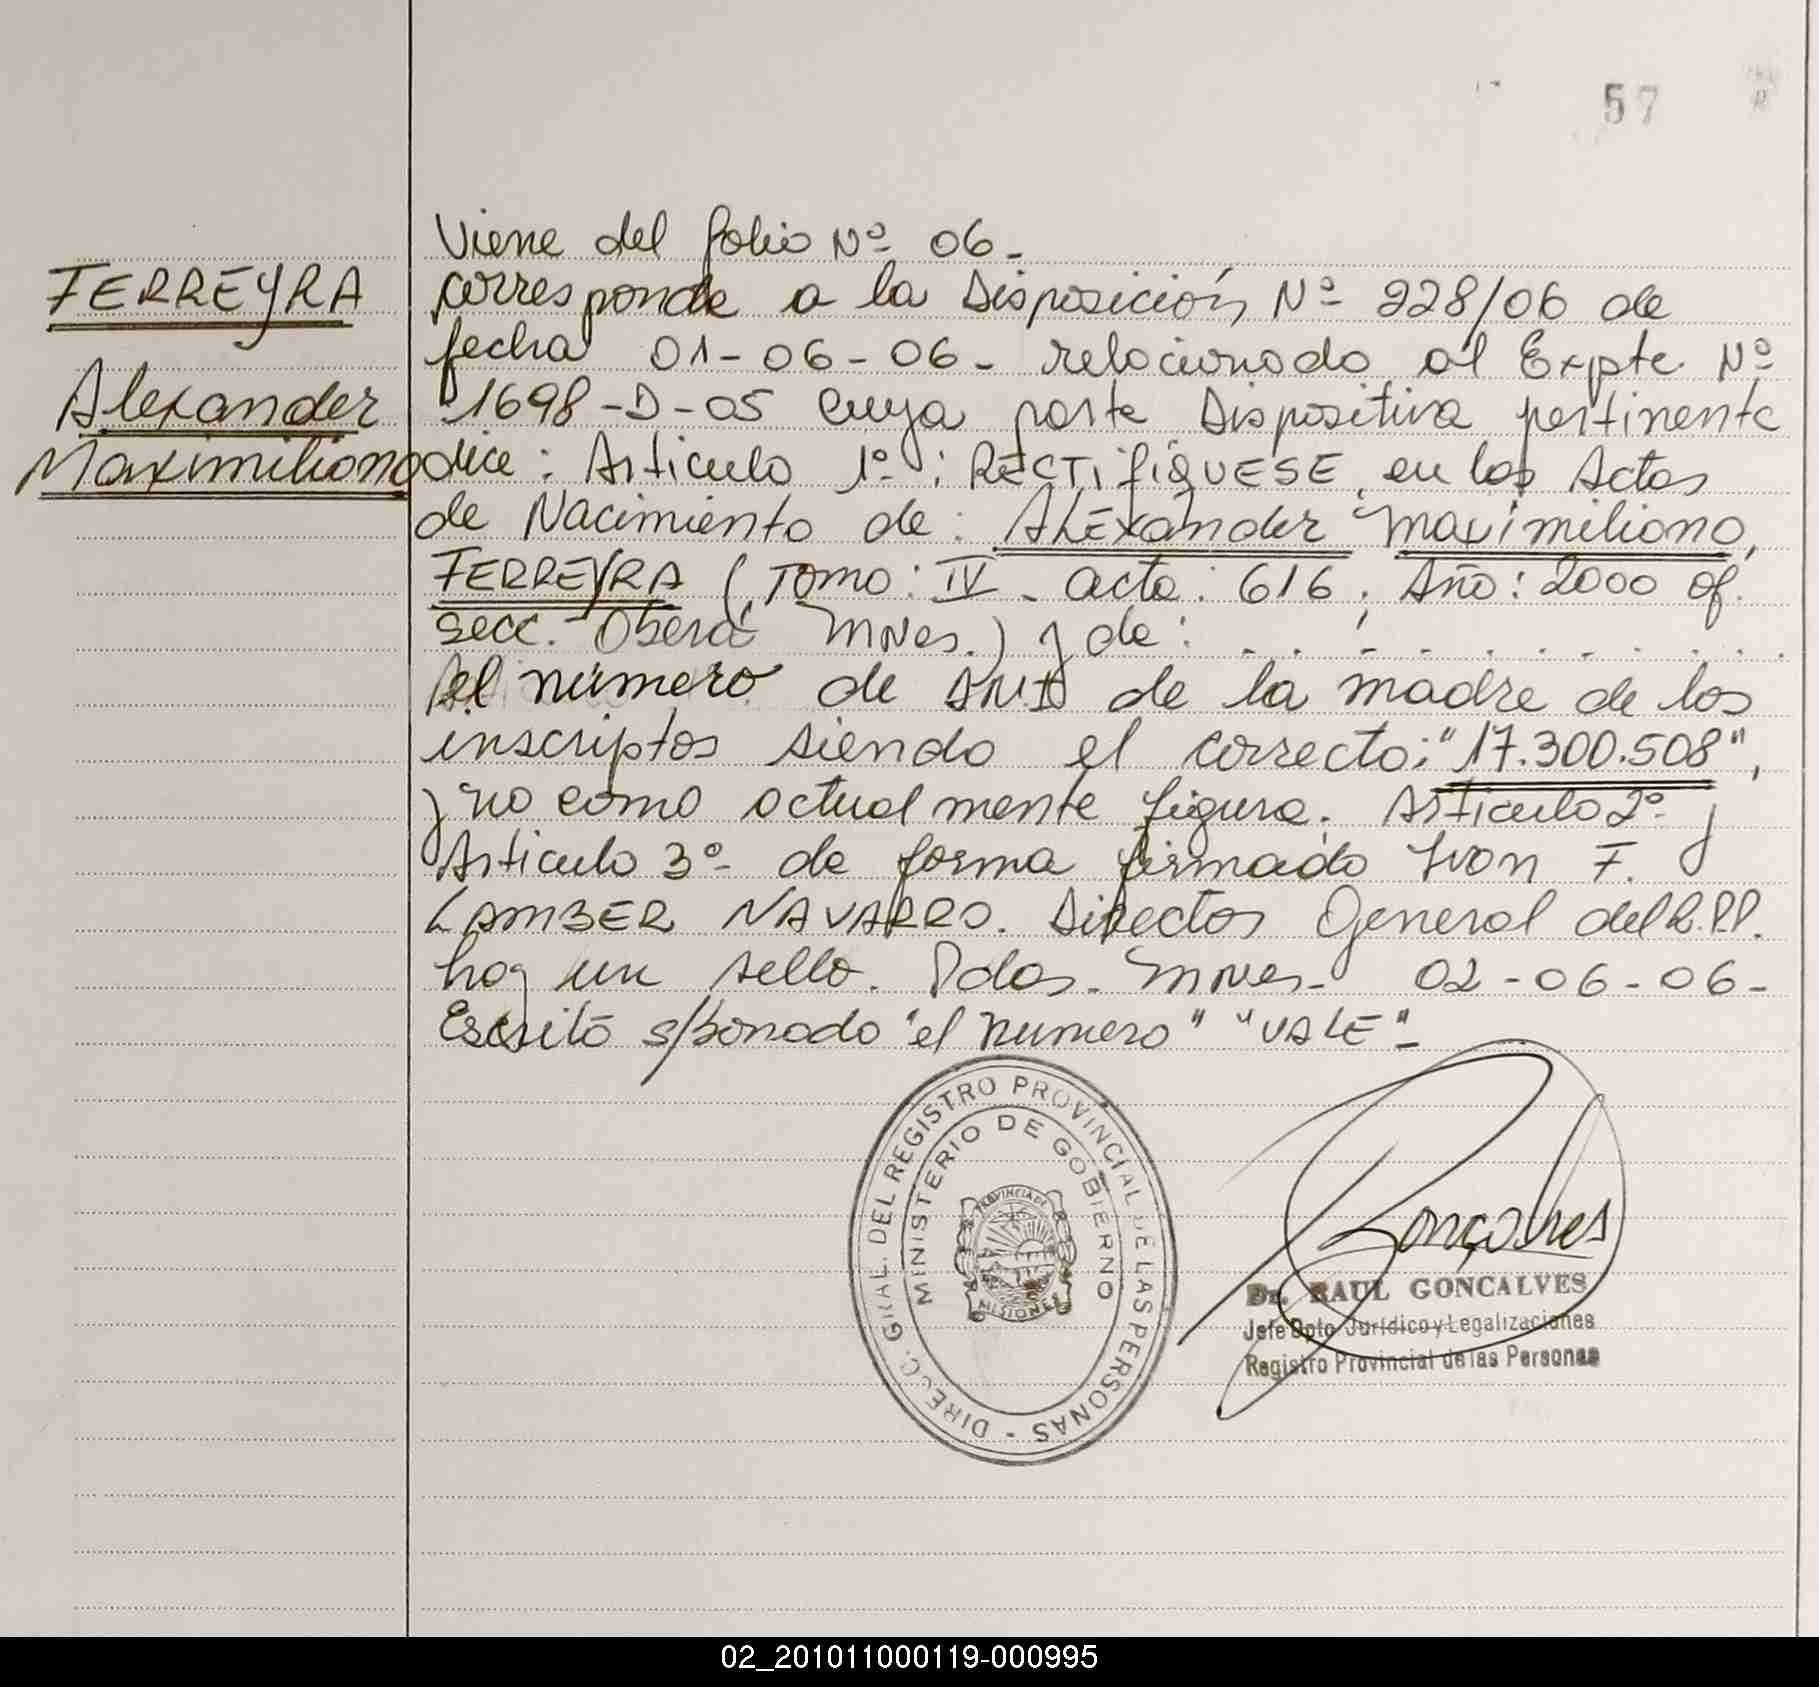 57
Viene del folio Nº 06.
FERREYRA
Alexander
Maximiliano
corresponde a la Disposición Nº 228/06 de
fecha 01-06-06- relacionado al Expte. Nº
1698-D-05 cuya parte Dispositiva pertinente
dice: Articulo 1º: RECTIFIQUESE, en las Actas
de Nacimiento de: ALExander Maximiliano,
FERREYRA (Tomo: IV - acta: 616, Año: 2000 of.
secc. Oberá Mnes.) y de: . . . - . - . . . . .
el número de DNI de la madre de los
inscriptos siendo el correcto: "17.300.508",
y no como actualmente figura. Articulo 2º y
Articulo 3º de forma firmado Ivon F.
LAMBER NAVARRO. Director General del R.P.P.
hay un sello. Pdas. Mnes- 02-06-06-
Escrito s/bonado "el numero" "VALE"-
DIRECC. GRAL. DEL REGISTRO PROVINCIAL DE LAS PERSONAS -
MINISTERIO DE GOBIERNO
PROVINCIA DE
MISIONES
Gonçalves
Dr. RAUL GONCALVES
Jefe Dpto Jurídico y Legalizaciones
Registro Provincial de las Personas
02_201011000119-000995